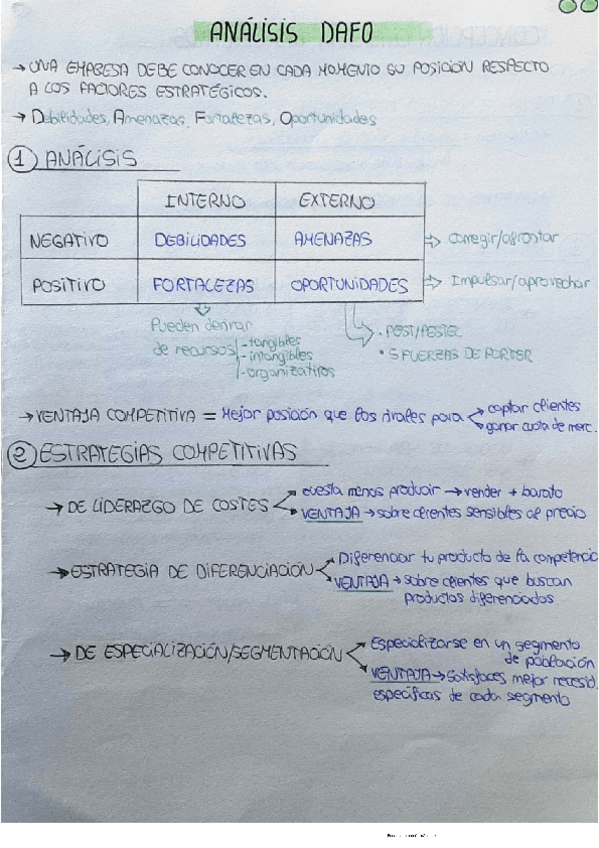 ANÁLISIS DAFO
→ UNA EMPRESA DEBE CONOCER EN CADA MOMENTO SU POSICIÓN RESPECTO
A LOS FACTORES ESTRATÉGICOS.
→ Debilidades, Amenazas, Fortalezas, Oportunidades
1 ANÁLISIS
INTERNO EXTERNO
NEGATIVO DEBILIDADES AMENAZAS ⇒ Corregir/afrontar
POSITIVO FORTALEZAS OPORTUNIDADES ⇒ Impulsar/aprovechar
Pueden derivar
de recursos
- tangibles
- intangibles
- organizativos
• PEST/PESTEL
• 5 FUERZAS DE PORTER
→ VENTAJA COMPETITIVA = Mejor posición que los rivales para
captar clientes
ganar cuota de merc.
2 ESTRATEGIAS COMPETITIVAS
→ DE LIDERAZGO DE COSTES
cuesta menos producir → vender + barato
VENTAJA → sobre clientes sensibles al precio
→ ESTRATEGIA DE DIFERENCIACIÓN
Diferenciar tu producto de la competencia
VENTAJA → sobre clientes que buscan
productos diferenciados
→ DE ESPECIALIZACIÓN/SEGMENTACIÓN
Especializarse en un segmento
de población
VENTAJA → Satisfaces mejor necesid.
específicas de cada segmento